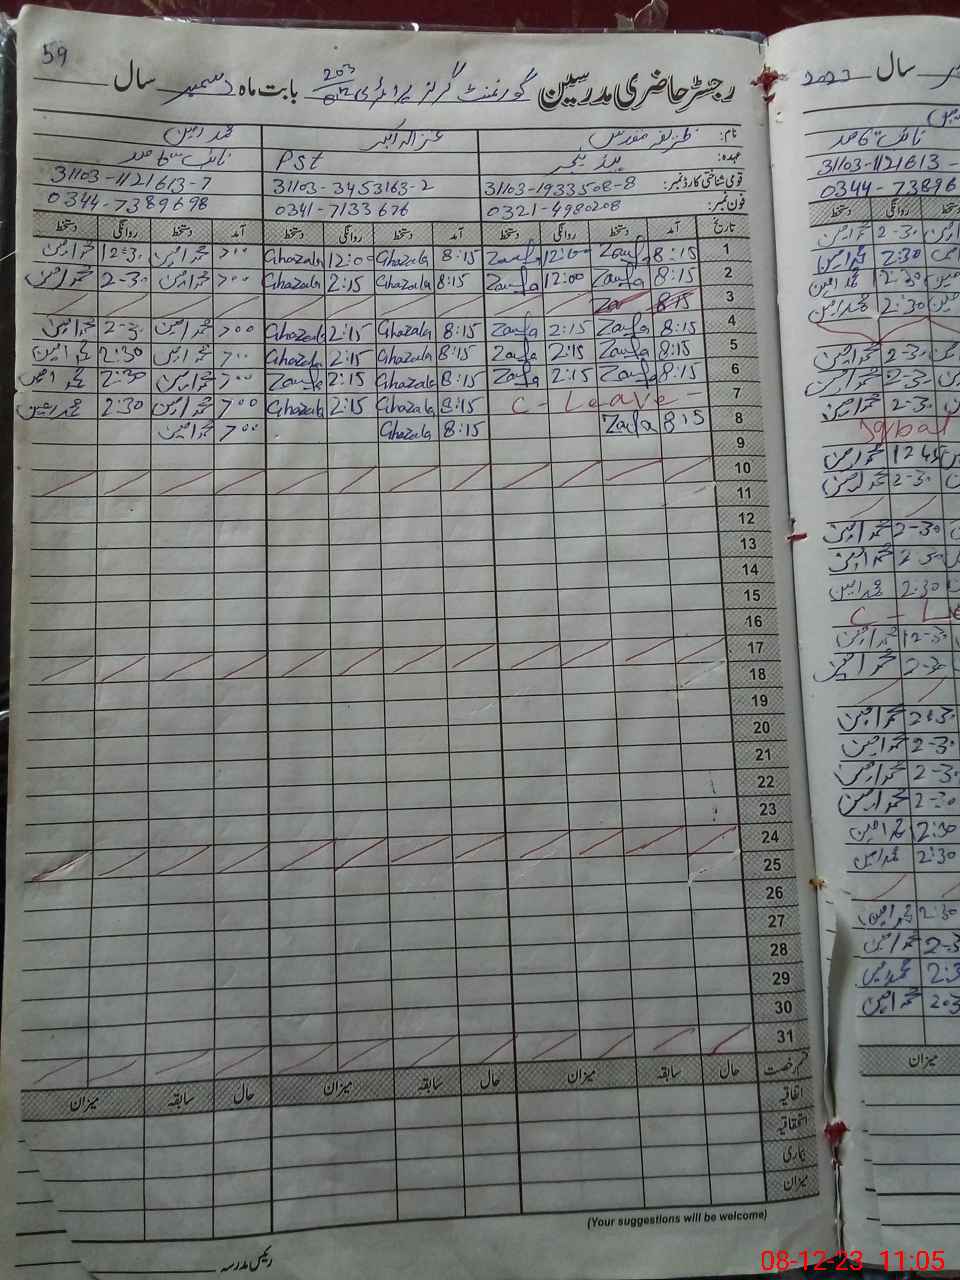 59
رجسٹر حاضری مدرسین گورنمنٹ گرلز پرائمری بابت ماہ دسمبر سال
نام: غزالہ اکبر محمد امین
عہدہ: Pst نائب قاصد
قومی شناختی کارڈ نمبر: 31103-1933508-8 31103-3453163-2 31103-1121613-7
فون نمبر: 0321-4980208 0341-7133676 0344-7389698
تاریخ آمد دستخط روانگی دستخط آمد دستخط روانگی دستخط آمد دستخط روانگی دستخط
1 8:15 Zaufa 12:00 Zaufa 8:15 Ghazala 12:00 Ghazala 7:00 محمد امین 12:30 محمد امین
2 8:15 Zaufa 12:00 Zaufa 8:15 Ghazala 2:15 Ghazala 7:00 محمد امین 2-30 محمد امین
3 8:15
4 8:15 Zaufa 2:15 Zaufa 8:15 Ghazala 2:15 Ghazala 7:00 محمد امین 2-30 محمد امین
5 8:15 Zaufa 2:15 Zaufa 8:15 Ghazala 2:15 Ghazala 7:00 محمد امین 2:30 محمد امین
6 8:15 Zaufa 2:15 Zaufa 8:15 Ghazala 2:15 Zaufa 7:00 محمد امین 2:30 محمد امین
7 C - Leave - 8:15 Ghazala 2:15 Ghazala 7:00 محمد امین 2:30 محمد امین
8 8:15 Zaufa 8:15 Ghazala 7:00 محمد امین
9
10
11
12
13
14
15
16
17
18
19
20
21
22
23
24
25
26
27
28
29
30
31
قسم رخصت حال سابقہ میزان حال سابقہ میزان حال سابقہ میزان
اتفاقیہ
استحقاقیہ
بیماری
میزان
(Your suggestions will be welcome)
رئیس مدرسہ
سال 2023
نائب قاصد
31103-1121613-
0344-73896
روانگی دستخط
2-30 محمد امین
2:30 محمد امین
2:30 محمد امین
2:30 محمد امین
2-30 محمد امین
2-30 محمد امین
2-30 محمد امین
Iqbal
محمد امین
2-30 محمد امین
2-30 محمد امین
محمد امین
2:30 محمد امین
C - Le
محمد امین
2-30 محمد امین
2:30 محمد امین
2-30 محمد امین
2-30 محمد امین
2-30 محمد امین
2:30 محمد امین
2:30 محمد امین
2:30 محمد امین
محمد امین
محمد امین
محمد امین
میزان
08-12-23 11:05